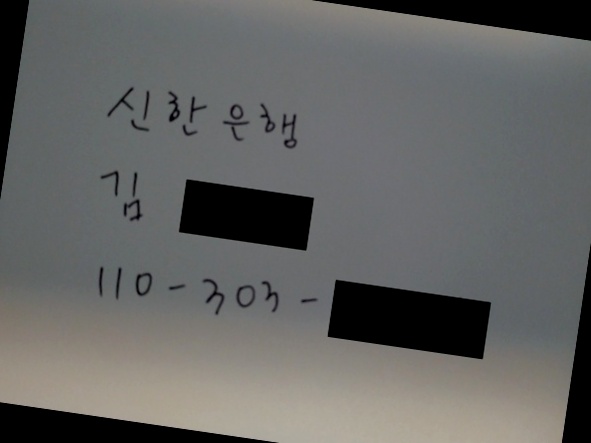 신한은행
김
110-303-